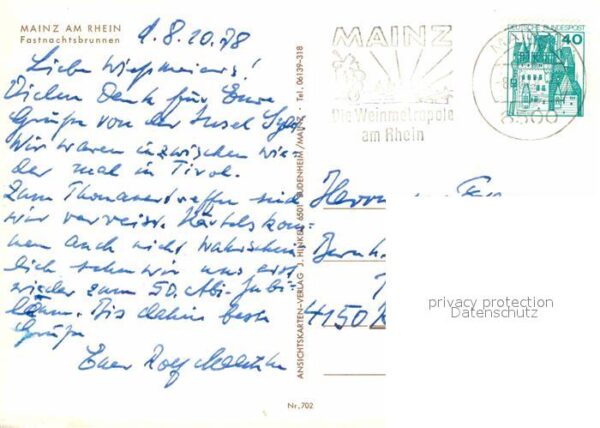 MAINZ AM RHEIN
Fastnachtsbrunnen
d. 8.10.78
Liebe Wießmeiers!
Vielen Dank für Eure
Grüße von der Insel Sylt
Wir waren inzwischen wie-
der mal in Tirol.
Zum Thomanertreffen sind
wir verreist. Härtels kom-
men auch nicht. Wahrschein-
lich sehen wir uns erst
wieder zum 50. Abi-Jubi-
läum. Bis dahin beste
Grüße
Euer Rolf
ANSICHTSKARTEN-VERLAG J. HINKEL 6501 BUDENHEIM/MAINZ · Tel. 06139-318
MAINZ
Die Weinmetropole
am Rhein
6500
DEUTSCHE BUNDESPOST
40
Herrn
Bernh.
4150 K
privacy protection
Datenschutz
Nr. 702